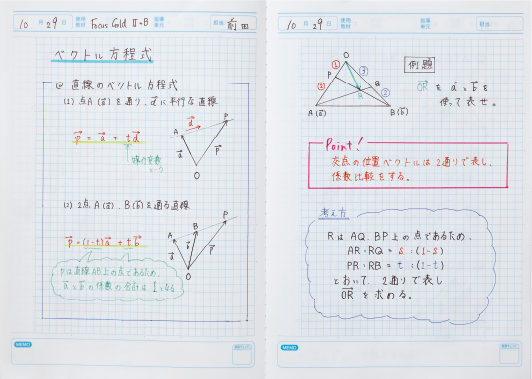 10 月 29 日 使用教材 Focus Gold Ⅱ+B 指導単元 担当 前田
ベクトル方程式
◎ 直線のベクトル方程式
(1) 点A(a⃗)を通り、d⃗に平行な直線
p⃗ = a⃗ + td⃗
媒介変数
A d⃗ P
a⃗ p⃗
O
(2) 2点A(a⃗)、B(b⃗)を通る直線
p⃗ = (1-t)a⃗ + tb⃗
A B P
a⃗ b⃗ p⃗
O
Pは直線AB上の点であるため、
a⃗とb⃗の係数の合計は1になる
MEMO
10 月 29 日 使用教材 指導単元 担当
O
① ③
P Q
③ R ②
A(a⃗) B(b⃗)
例題
OR⃗ を a⃗とb⃗を
使って表せ。
Point!
交点の位置ベクトルは2通りで表し、
係数比較をする。
考え方
RはAQ、BP上の点であるため、
AR:RQ = s:(1-s)
PR:RB = t:(1-t)
とおいて、2通りで表し
OR⃗ を求める。
MEMO